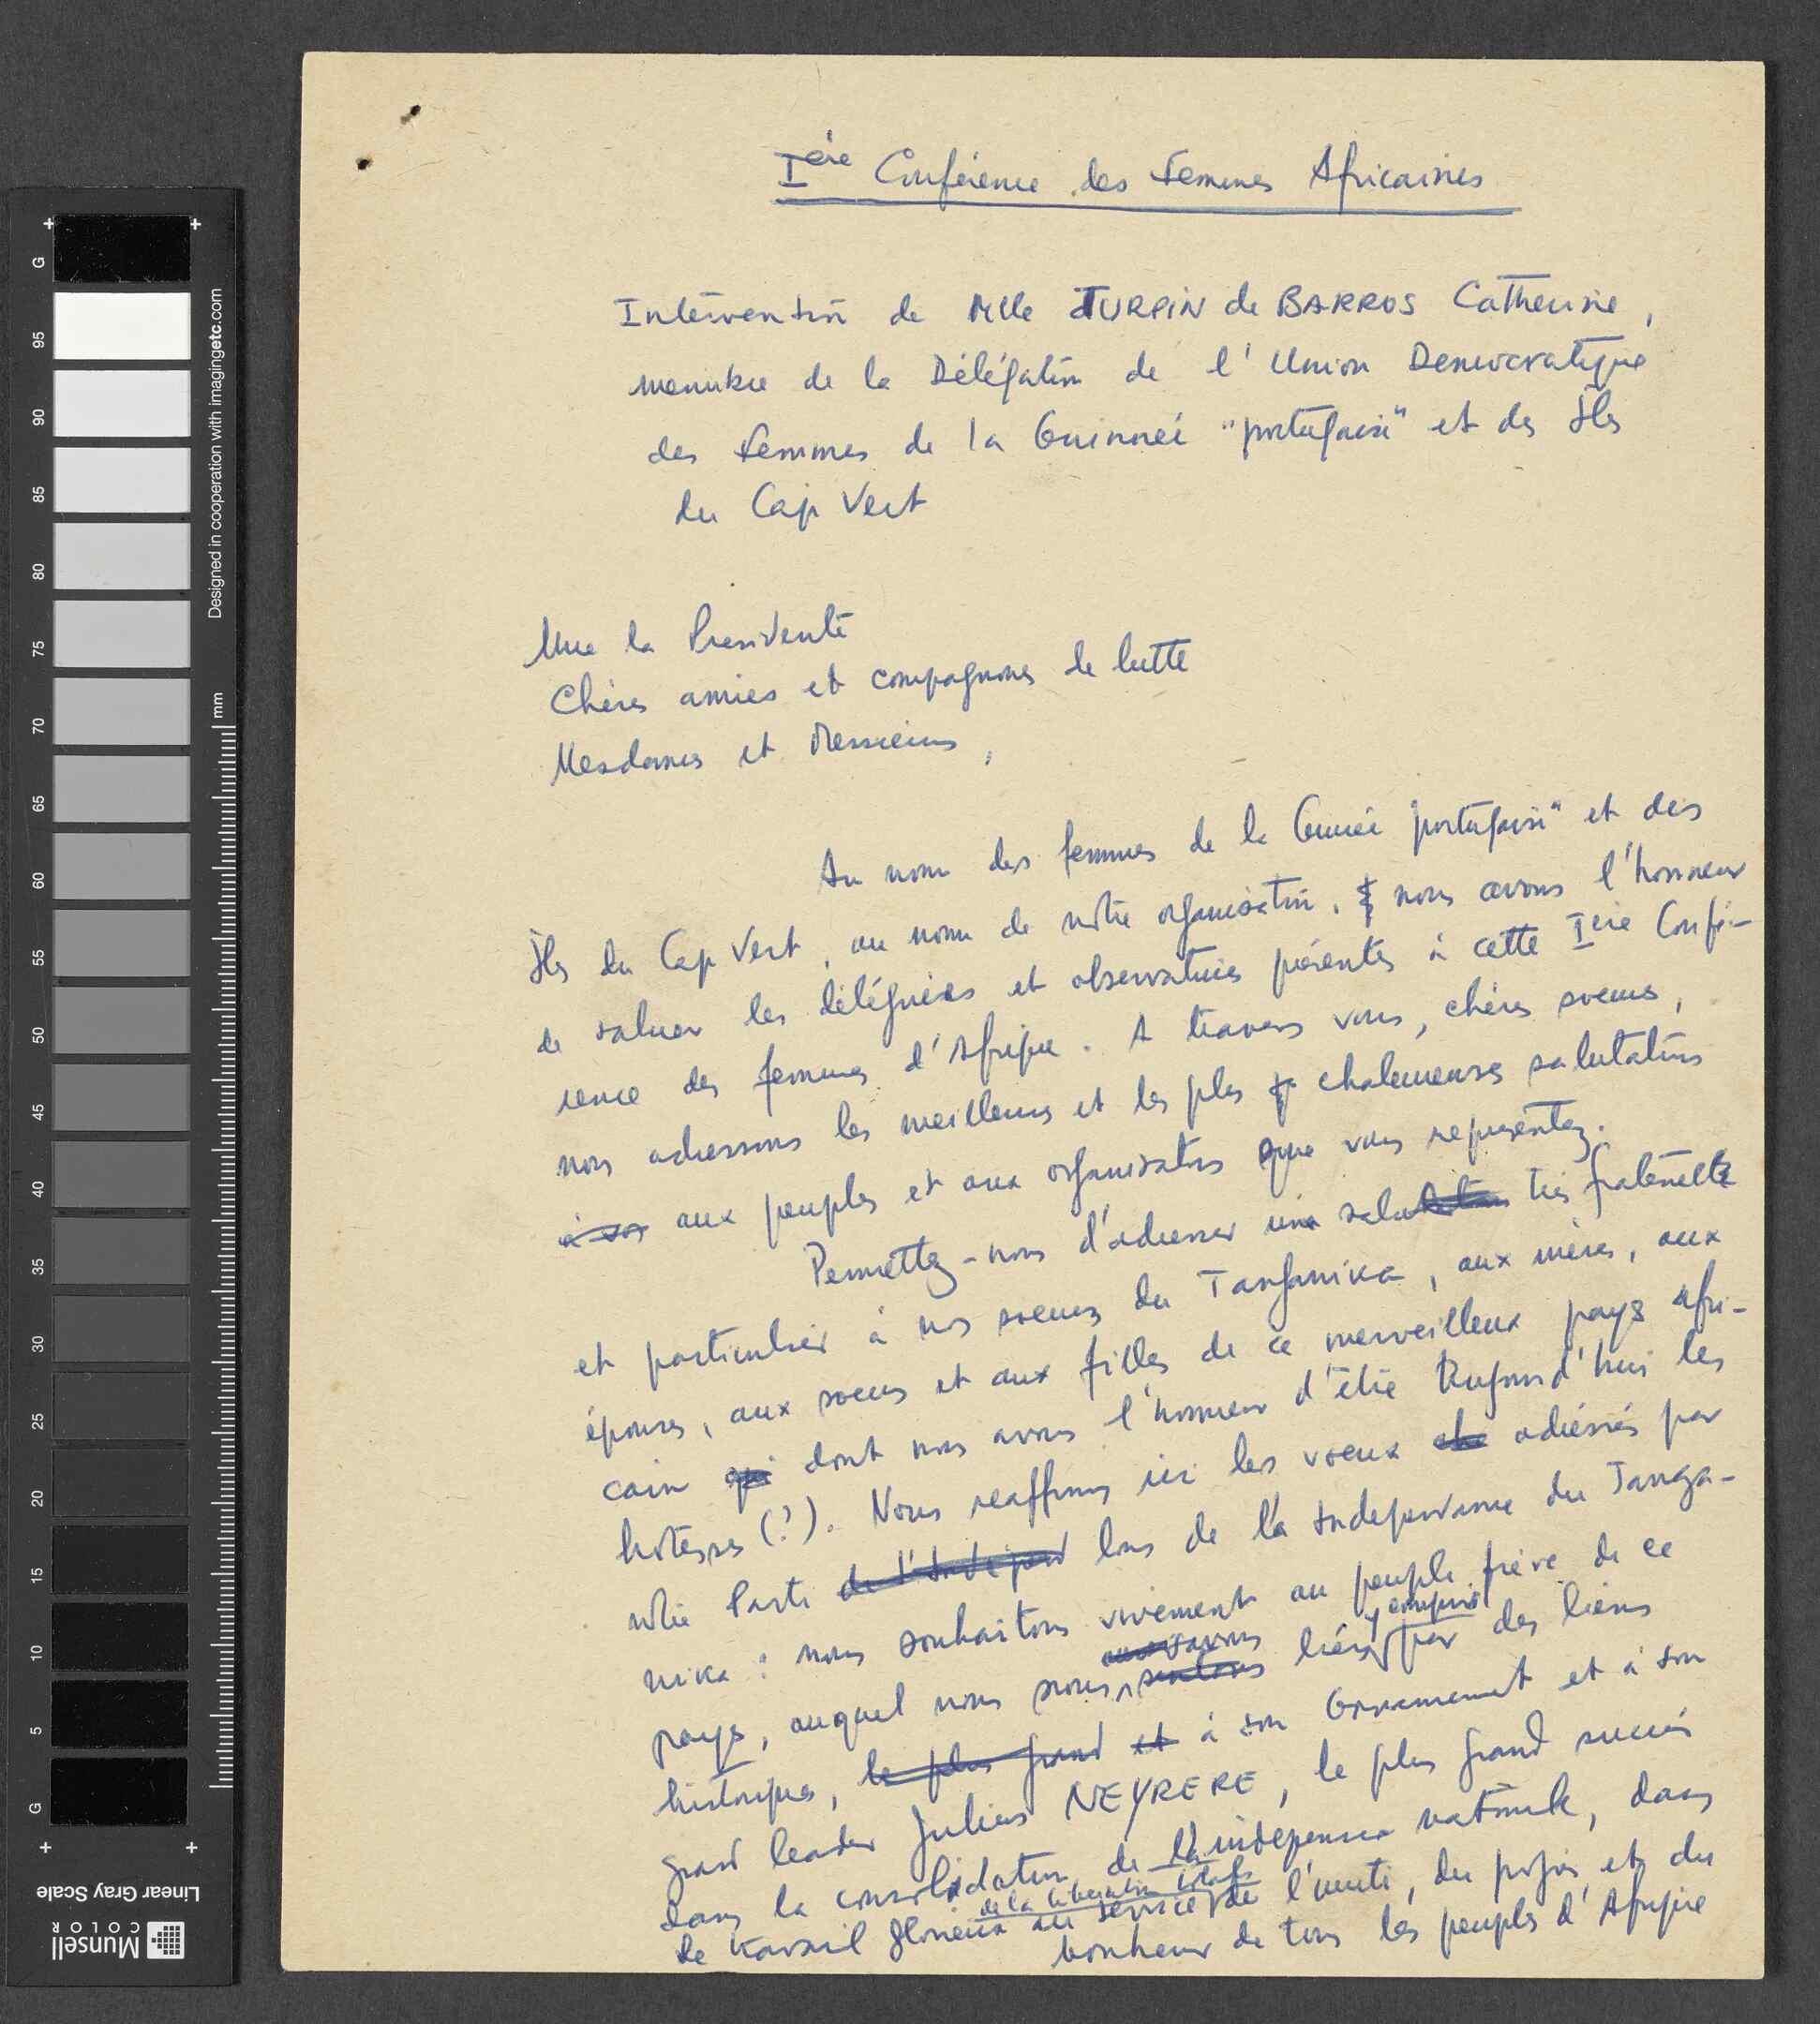 Ière Conférence des Femmes Africaines
Intervention de Mlle TURPIN de BARROS Catherine,
membre de la Délégation de l'Union Democratique
des Femmes de la Guinneé "portugaise" et des Iles
du Cap Vert
Mme la Presidente
Chères amies et compagnons de lutte
Mesdames et Messieurs,
Au nom des femmes de la Guinée "portugaise" et des
Iles du Cap Vert, au nom de notre organisation, nous avons l'honneur
de saluer les déléguées et observatrices présentes à cette Ière Confé-
rence des femmes d'Afrique. A travers vous, chères soeurs,
nous adressons les meilleurs et les plus chaleureuses salutations
aux peuples et aux organisations que vous representez.
Permettez-nous d'adresser un salut très fraternelle
et particulier à nos soeurs du Tanganika, aux mères, aux
épouses, aux soeurs et aux filles de ce merveilleux pays afri-
cain qui dont nous avons l'honneur d'être aujourd'hui les
hotesses (?). Nous reaffirmons ici les voeux adréssés par
notre Parti de l'Indépend lors de la Independance du Tanga-
nika : nous souhaitons vivement au peuple frère de ce
pays, auquel nous nous savons sentons liées par des liens
historiques, le plus grand et à son Gouvernement et à son
grand leader Julius NEYRERE, le plus grand succès
dans la consolidation de l'independence nationale, dans
le travail glorieux au service de la liberation totale de l'unité, du progrès et du
bonheur de tous les peuples d'Afrique
G
95
90
85
80
75
70
65
60
55
50
45
40
35
30
25
20
15
10
5
G
mm
Designed in cooperation with imagingetc.com
Linear Gray Scale
Munsell
COLOR